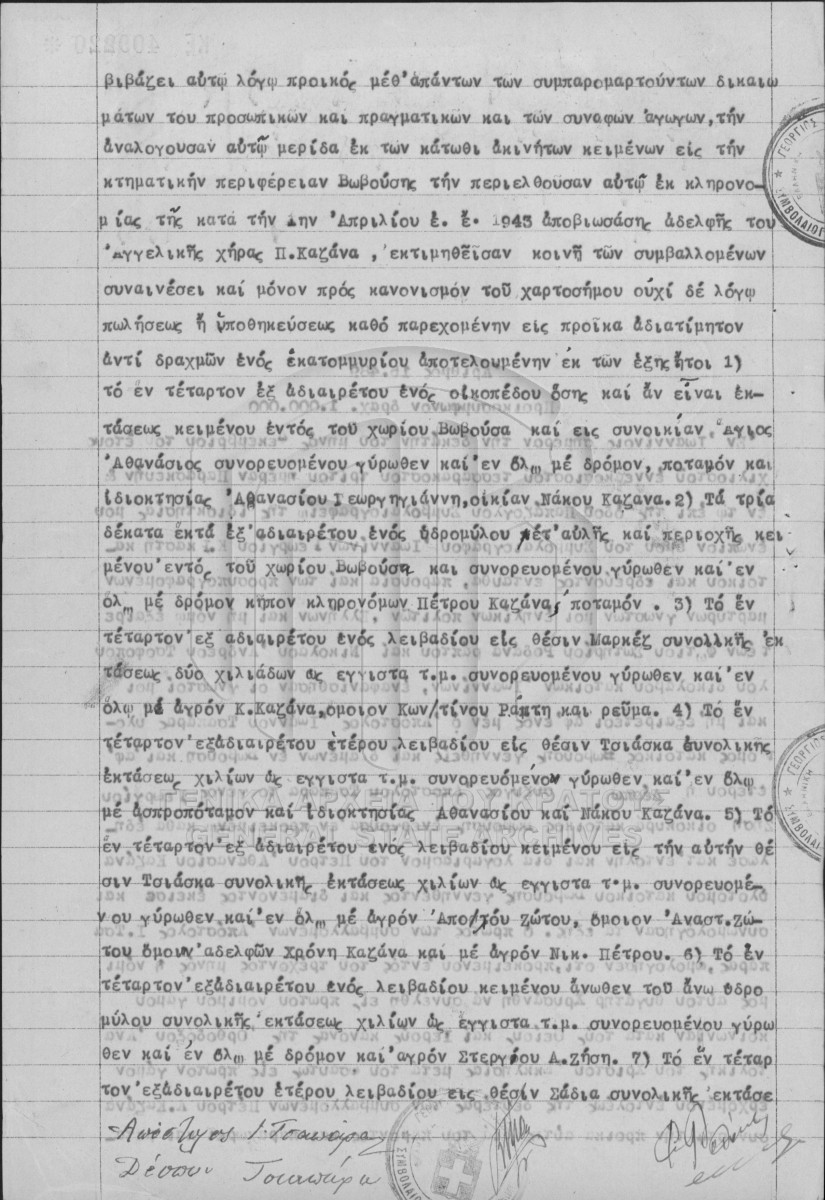 βιβάζει αὐτῷ λόγῳ προικός μέθ'ἁπάντων των συμπαρομαρτούντων δικαιω
μάτων του προσωπικῶν και πραγματικῶν και τῶν συναφῶν ἀγωγων,τήν
ἀναλογουσαν αὐτῷ μερίδα ἐκ τῶν κάτωθι ἀκινήτων κειμένων εἰς τήν
κτηματικήν περιφέρειαν Βωβούσης τήν περιελθοῦσαν αὐτῷ ἐκ κληρονο-
μίας τῆς κατά τήν 1ην Ἀπριλίου ἐ. ἔ. 1943 ἀποβιωσάσης ἀδελφῆς του
Ἀγγελικῆς χήρας Π.Καζάνα ,ἐκτιμηθεῖσαν κοινῇ τῶν συμβαλλομένων
συναινέσει καί μόνον πρός κανονισμόν τοῦ χαρτοσήμου οὐχί δέ λόγῳ
πωλήσεως ἤ ὑποθηκεύσεως καθό παρεχομένην εἰς προῖκα ἀδιατίμητον
ἀντί δραχμῶν ἑνός ἑκατομμυρίου ἀποτελουμένην ἐκ τῶν ἑξῆς ἤτοι 1)
τό ἕν τέταρτον ἐξ ἀδιαιρέτου ἑνός οἰκοπέδου ὅσης καί ἄν εἶναι ἐκ-
τάσεως κειμένου ἐντός τοῦ χωρίου Βωβούσα καί εις συνοικίαν Ἅγιος
Ἀθανάσιος συνορευομένου γύρωθεν καί'ἐν ὅλῳ μέ δρόμον, ποταμόν και
ἰδιοκτησίας Ἀθανασίου Γεωργηγιάννη,οἰκίαν Νάκου Καζάνα.2) Τά τρία
δέκατα ἕκτά ἐξ'ἀδιαιρέτου ἑνός ὑδρομύλου μετ'αὐλῆς καί περιοχῆς κει
μένου'ἐντός τοῦ χωρίου Βωβούση και συνορευομένου γύρωθεν καί'ἐν
ὅλῳ μέ δρόμον κῆπον κληρονόμων Πέτρου Καζάνα, ποταμόν . 3) Τό ἕν
τέταρτον'ἐξ ἀδιαιρέτου ἑνός λειβαδίου εἰς θέσιν Μαρκέζ συνολικῆς ἐκ
τάσεως δύο χιλιάδων ὡς ἐγγιστα τ.μ. συνορευομένου γύρωθεν καί'ἐν
ὅλῳ μέ ἀγρόν Κ.Καζάνα,ὅμοιον Κων/τίνου Ράπτη και ρεῦμα. 4) Τό ἕν
τέταρτον'ἐξἀδιαιρέτου ἑτέρου λειβαδίου εἰς θέσιν Τσιάσκα συνολικῆς
ἐκτάσεως χιλίων ὡς ἐγγιστα τ.μ. συνορευομένον γύρωθεν καί'ἐν ὅλῳ
μέ ἀσπροπόταμον καί ἰδιοκτησίας Ἀθανασίου καί Νάκου Καζάνα. 5) Τό
ἕν τέταρτον'ἐξ ἀδιαιρέτου ἑνός λειβαδίου κειμένου εἰς τήν αὐτήν θέ
σιν Τσιάσκα συνολικῆς ἐκτάσεως χιλίων ὡς ἔγγιστα τ.μ. συνορευομέ-
νου γύρωθεν καί'ἐν ὅλῳ μέ ἀγρόν Ἀπο/του Ζώτου, ὅμοιον Ἀναστ.Ζώ-
του ὅμοιν'ἀδελφῶν Χρόνη Καζάνα και μέ ἀγρόν Νικ. Πέτρου. 6) Τό ἕν
τέταρτον'ἐξἀδιαιρέτου ἑνός λειβαδίου κειμένου ἄνωθεν τοῦ ἄνω ὑδρο
μύλου συνολικῆς'ἐκτάσεως χιλίων ὡς ἔγγιστα τ.μ. συνορευομένου γύρω
θεν καί ἐν ὅλῳ μέ δρόμον καί'ἀγρόν Στεργίου Α.Ζήση. 7) Τό ἕν τέταρ
τον'ἐξἀδιαιρέτου ἑτέρου λειβαδίου εις θέσιν Σάδια συνολικῆς'ἐκτάσε
Ἀπόστολος Ι Τσαπάρα
Δέσπω Τσιαπάρα
ΓΕΝΙΚΑ ΑΡΧΕΙΑ ΤΟΥ ΚΡΑΤΟΥΣ
GENERAL STATE ARCHIVES